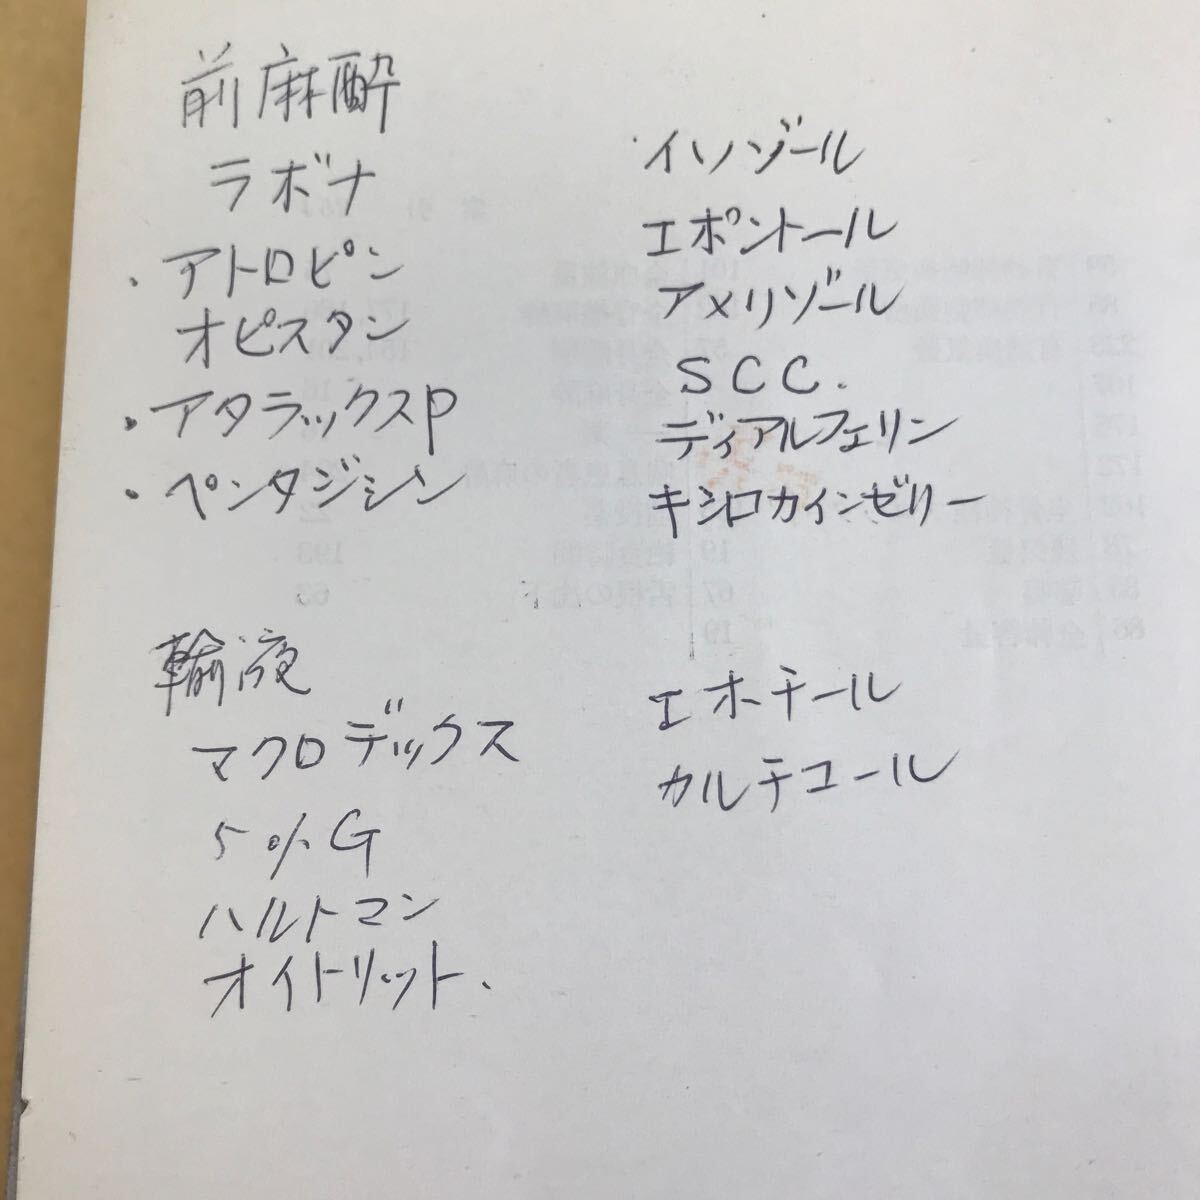 前麻酔
ラボナ
・アトロピン
オピスタン
・アタラックスP
・ペンタジシン
・イソゾール
エポントール
アメリゾール
SCC.
ディアルフェリン
キシロカインゼリー
輸液
マクロデックス
5%G
ハルトマン
オイトリット.
エホチール
カルチコール